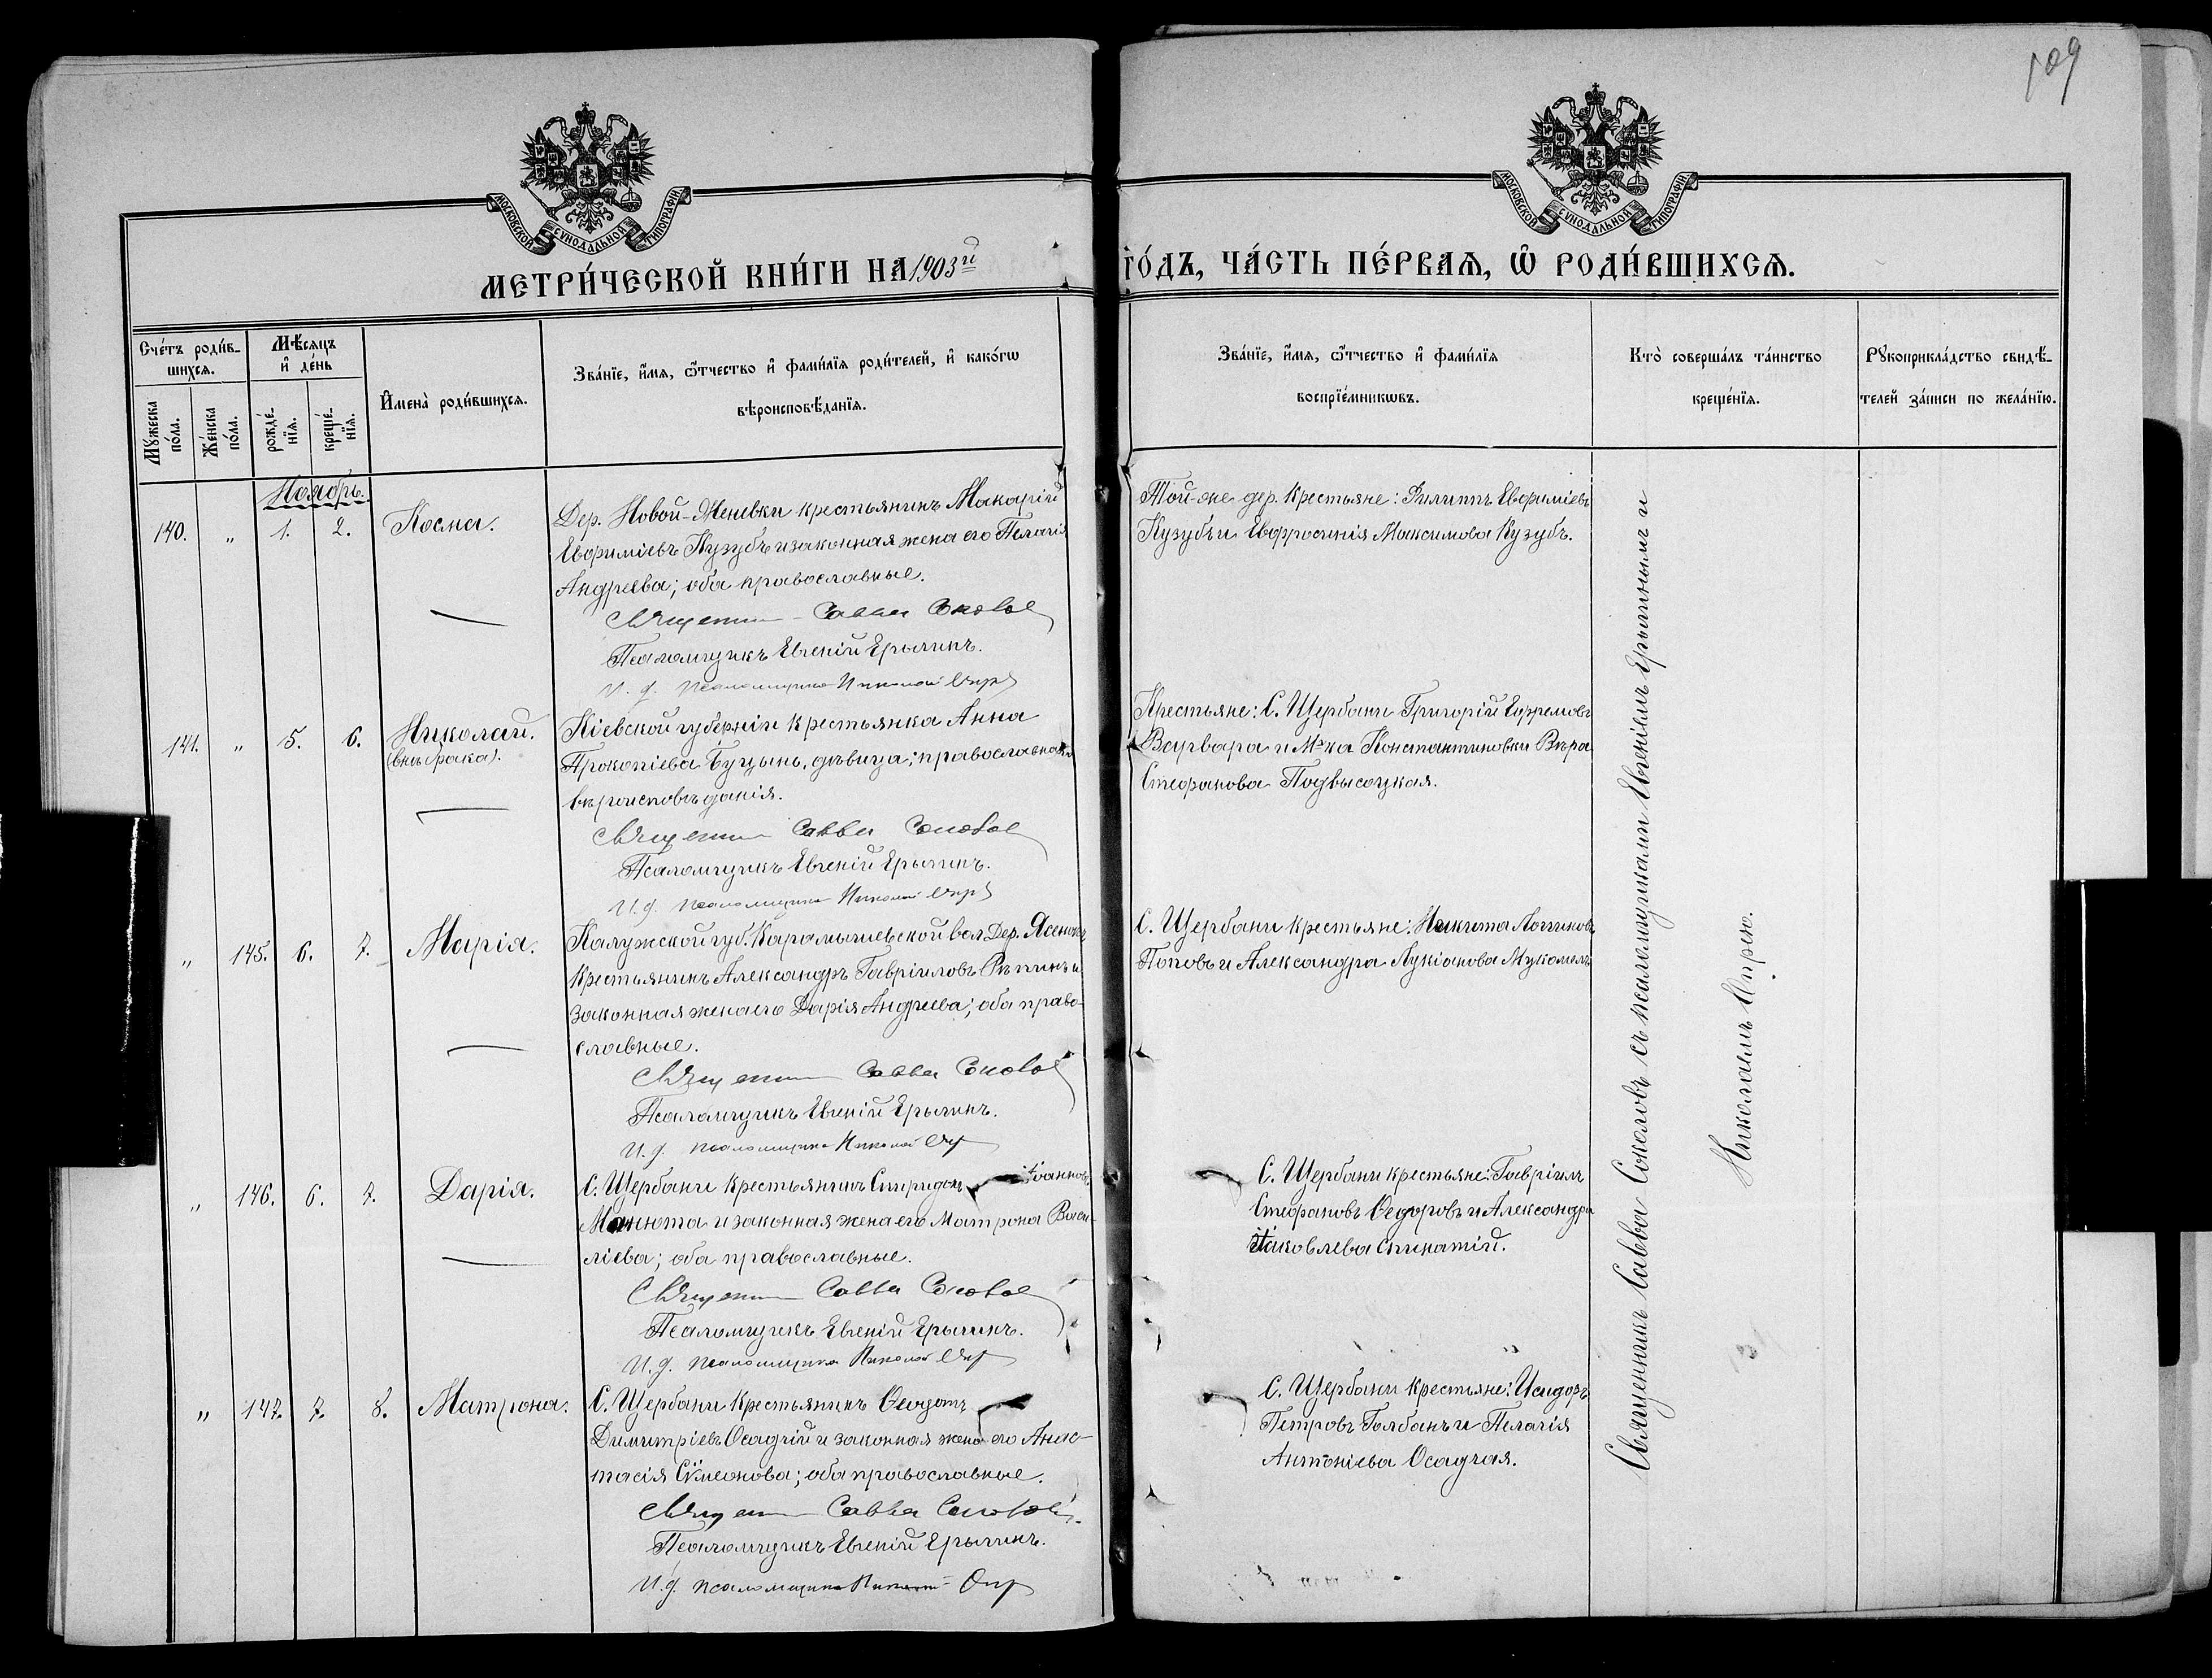 109
МОСКОВСКОЙ СУНОДАЛЬНОЙ ТИПОГРАФИИ
МОСКОВСКОЙ СУНОДАЛЬНОЙ ТИПОГРАФИИ
МЕТРИ́ЧЕСКОЙ КНИ́ГИ НА 1903й
ГО́ДЪ, ЧА́СТЬ ПЕ́РВАѦ, Ѡ҆ РОДИ́ВШИХСѦ.
Сче́тъ роди́в-
шихсѧ.
Мꙋ́жеска по́ла.
Же́нска по́ла.
Мѣ́сѧцъ и҆ де́нь
рожде́-нїѧ.
креще́-нїѧ.
И҆мена̀ роди́вшихсѧ.
Зва́нїе, и҆́мѧ, ѻ҆́тчество и҆ фами́лїѧ роди́телей, и҆ како́гѡ
вѣроисповѣ́данїѧ.
Зва́нїе, и҆́мѧ, ѻ҆́тчество и҆ фами́лїѧ
воспрїе́мникѡвъ.
Кто̀ соверша́лъ та́инство
креще́нїѧ.
Рꙋкоприкла́дство свидѣ́-
телей за́писи по жела́нїю.
Ноябрь.
140. " 1. 2. Косма.
Дер. Новой-Меневки крестьянинъ Макарій
Евфиміевъ Кузубъ и законная жена его Пелагія
Андреева; оба православные.
Священник Савва Соколов
Псаломщикъ Евгеній Ерыгинъ.
И. д. псаломщика Николай
Той-же дер. крестьяне: Филиппъ Евфиміевъ
Кузубъ и Евфросинія Максимова Кузубъ.
141. " 5. 6. Николай.
(внѣ брака).
Кіевской губерніи крестьянка Анна
Прокопіева Буцынь, дѣвица; православнаго
вѣроисповѣданія.
Священник Савва Соколов
Псаломщикъ Евгеній Ерыгинъ.
И. д. псаломщика Николай
Крестьяне: С. Щербани Григорій Ефремовъ
Варвара и М-ка Константиновки Вѣра
Стефанова Подвысоцкая.
" 145. 6. 7. Марія.
Калужской губ. Карамышевской вол. Дер. Ясенокъ
крестьянинъ Александръ Гавріиловъ Рѣпинъ и
законная жена его Дарія Андреева; оба право-
славные.
Священник Савва Соколов
Псаломщикъ Евгеній Ерыгинъ.
И. д. псаломщика Николай
С. Щербани крестьяне: Никита Логиновъ
Поповъ и Александра Лукіанова Мукомелъ
" 146. 6. 7. Дарія.
С. Щербани крестьянинъ Спиридонъ Іоанновъ
Манюта и законная жена его Матрона Васи-
ліева; оба православные.
Священник Савва Соколов
Псаломщикъ Евгеній Ерыгинъ.
И. д. псаломщика Николай
С. Щербани крестьяне: Гавріилъ
Стефановъ Ѳедоровъ и Александра
Іаковлева Спинатій.
" 147. 7. 8. Матрона.
С. Щербани крестьянинъ Ѳеодотъ
Димитріевъ Осадчій и законная жена его Анас-
тасія Сѵмеонова; оба православные.
Священник Савва Соколов
Псаломщикъ Евгеній Ерыгинъ.
И. д. псаломщика
С. Щербани крестьяне: Исидоръ
Петровъ Голбанъ и Пелагія
Антоніева Осадчая.
Священникъ Савва Соколовъ съ псаломщиками Евгеніемъ Ерыгинымъ и
Николаемъ